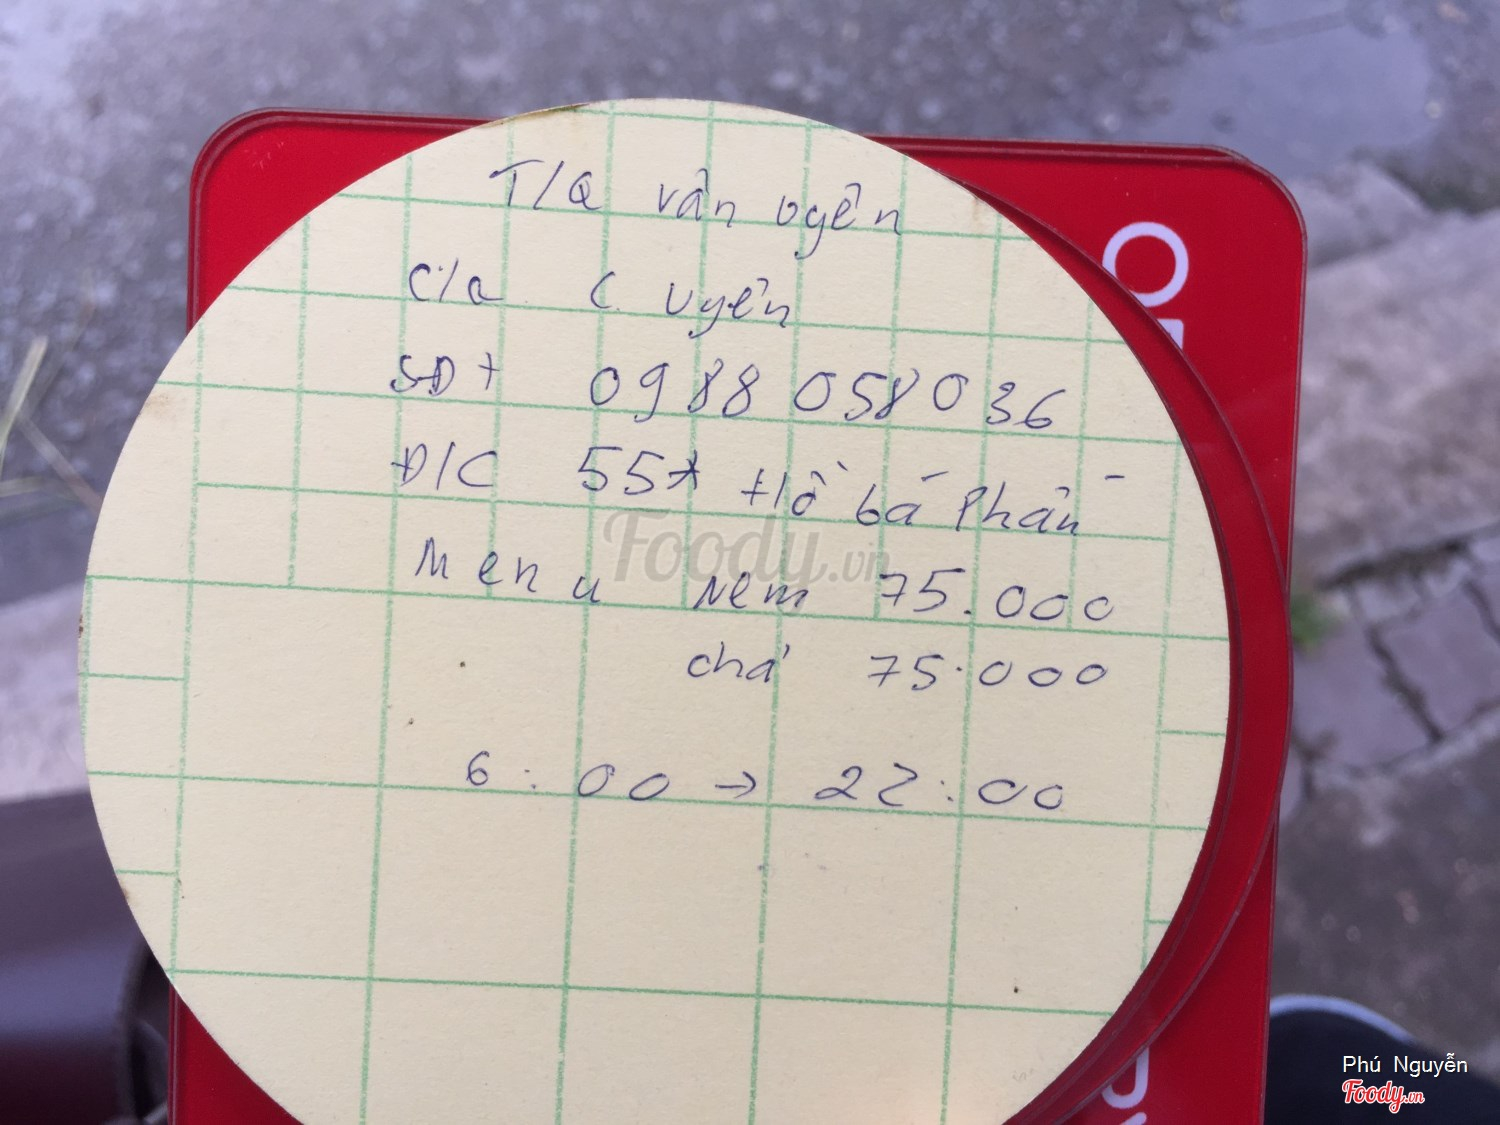 T/Q vân uyên
C/a C. Uyên
SĐt 0988 058 036
Đ/C 55A Hồ bá Phấn
Menu Nem 75.000
chả 75.000
6:00 → 22:00
Foody.vn
Phú Nguyễn
Foody.vn